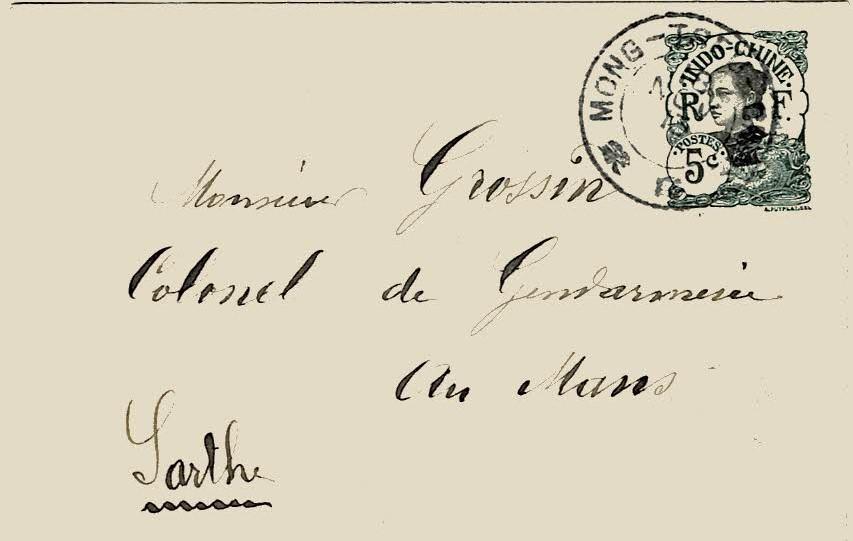 MONG-
INDO-CHINE
R F.
POSTES
5c
Monsieur Grossin
Colonel de Gendarmerie
Au Mans
Sarthe